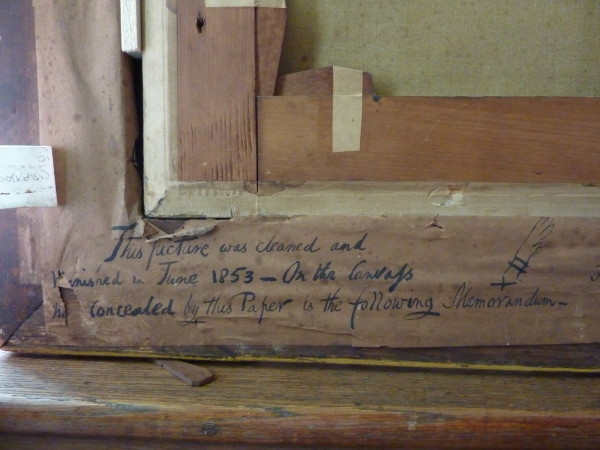 This picture was cleaned and
in June 1853 — On the Canvass
concealed by this Paper is the following Memorandum —